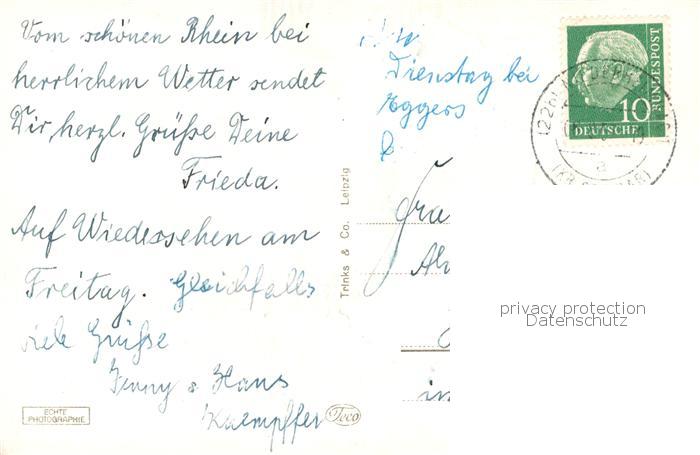 Vom schönen Rhein bei
herrlichem Wetter sendet
Dir herzl. Grüße Deine
Frieda.
Auf Wiedersehen am
Freitag. Gleichfalls
viele Grüße
Jenny u Hans
Kaempffer
ECHTE
PHOTOGRAPHIE
Teco
Trinks & Co. Leipzig
Dienstag bei
Eggers
Fra
in
10
DEUTSCHE
BUNDESPOST
(22b)
a
privacy protection
Datenschutz